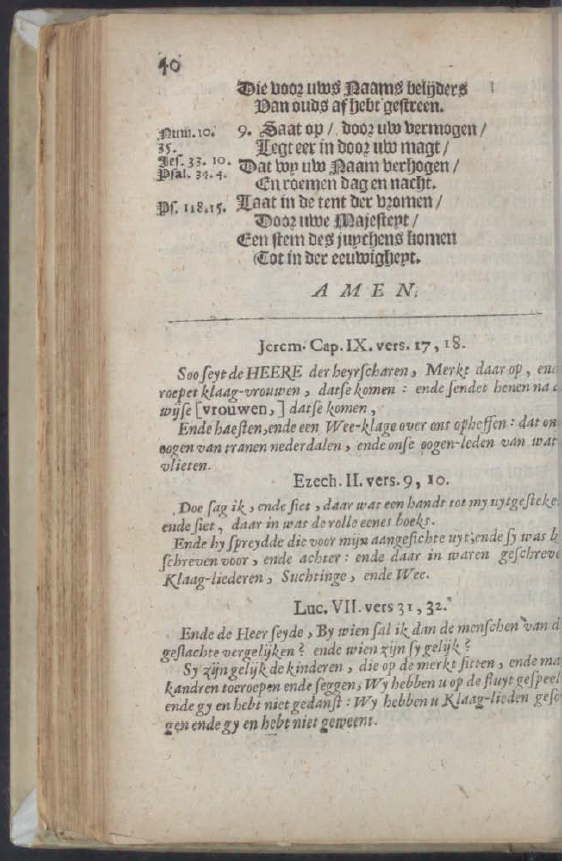 40
Die voor uws Naams belijders
Van ouds af hebt gestreen.
Num. 10.
35.
Jes. 33. 10.
Psal. 34. 4.
9. Staat op / door uw vermogen /
Legt eer in door uw magt /
Dat wy uw Naam verhogen /
En roemen dag en nacht.
Ps. 118.15.
Laat in de tent der vromen /
Door uwe Majesteyt /
Een stem des juychens komen
Tot in der eeuwigheyt.
AMEN.
Jerem. Cap. IX. vers. 17, 18.
Soo seyt de HEERE der heyrscharen, Merkt daar op, end
roepet klaag-vrouwen, datse komen : ende sendet henen na d
wijse [vrouwen,] datse komen,
Ende haesten, ende een Wee-klage over ons opheffen : dat on
oogen van tranen nederdalen, ende onse oogen-leden van wat
vlieten.
Ezech. II. vers. 9, 10.
Doe sag ik, ende siet, daar was een handt tot my uytgesteke
ende siet, daar in was de rolle eenes boeks.
Ende hy spreydde die voor mijn aangesichte uyt, ende sy was b
schreven voor, ende achter : ende daar in waren geschreve
Klaag-liederen, Suchtinge, ende Wee.
Luc. VII. vers 31, 32.
Ende de Heer seyde, By wien sal ik dan de menschen van d
geslachte vergelijken? ende wien zijn sy gelijk?
Sy zijn gelijk de kinderen, die op de merkt sitten, ende ma
kandren toeroepen ende seggen, Wy hebben u op de fluyt gespeel
ende gy en hebt niet gedanst : Wy hebben u Klaag-lieden geso
gen ende gy en hebt niet geweent.